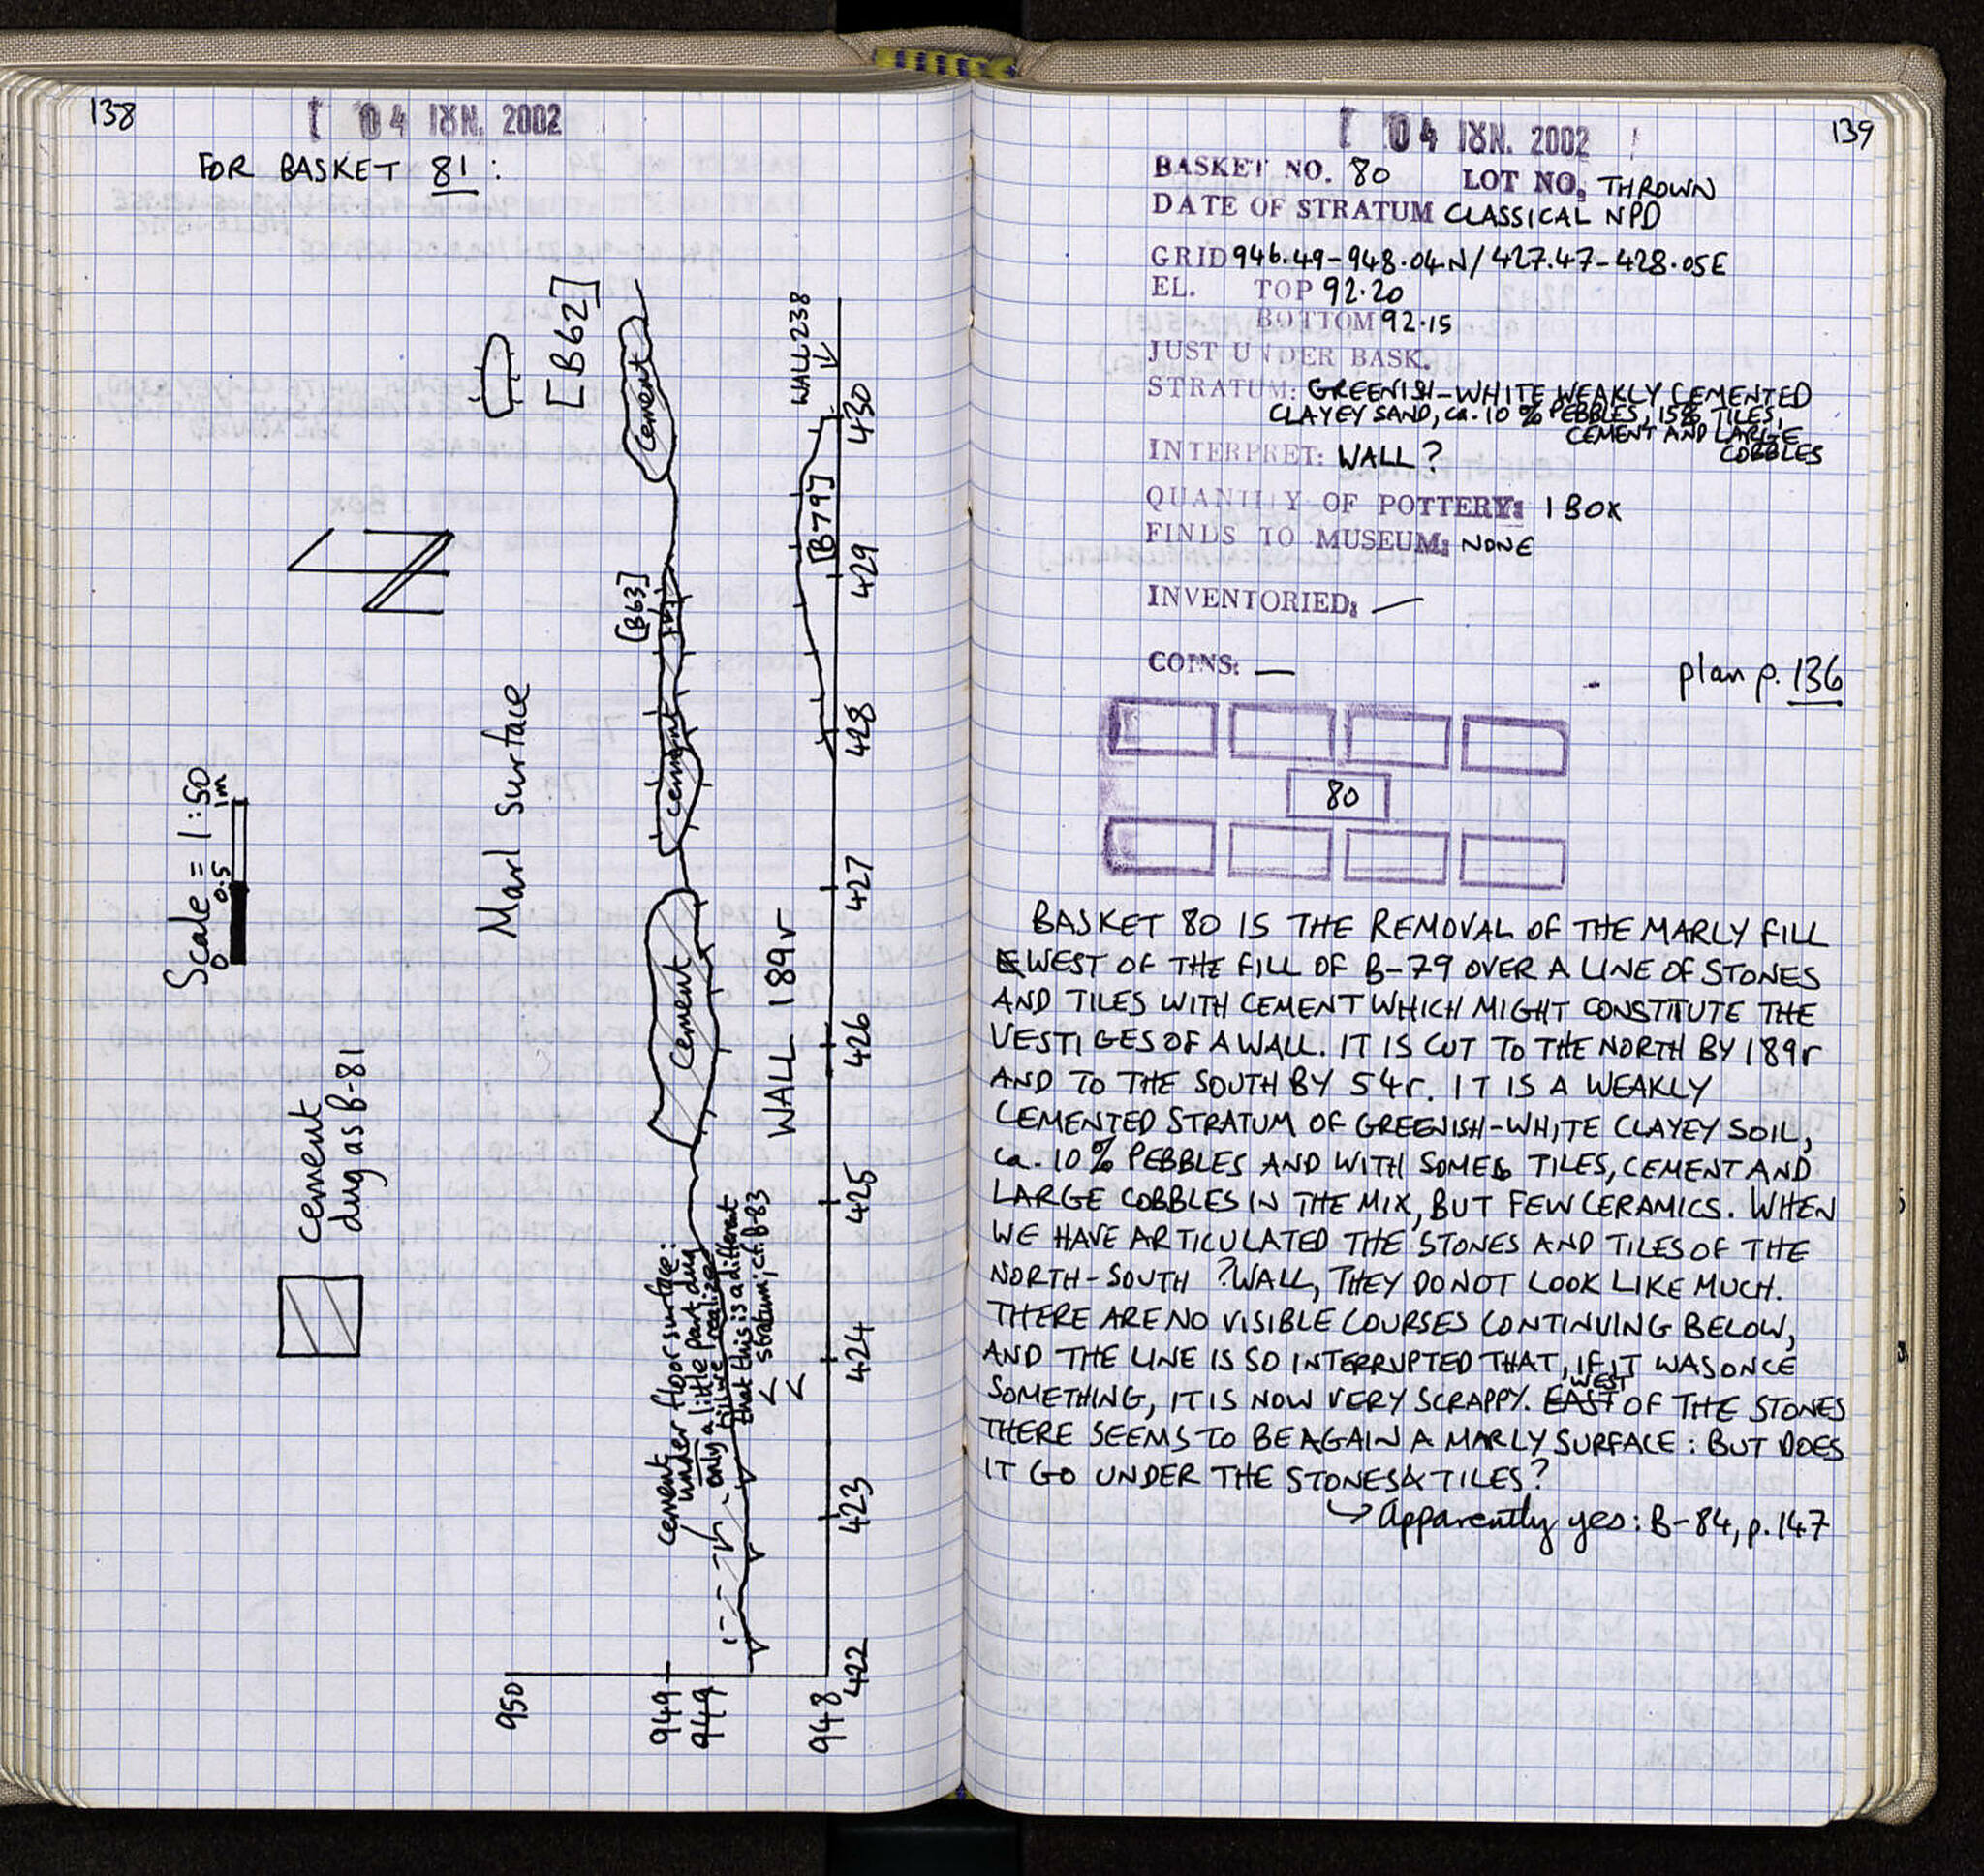 138
[ 04 ΙȣΝ. 2002
FOR BASKET 81:
Scale = 1:50
0 0.5 1m
cement
dug as B-81
Marl surface
[B62]
cement
[B63]
cement
cement
WALL 238
[B79]
WALL 189r
cement floor surface:
under
only a little part dug
till we realized
that this is a different
stratum; cf. B-83
950
949
949
948
422 423 424 425 426 427 428 429 430
139
[ 04 ΙȣΝ. 2002
BASKET NO. 80 LOT NO. THROWN
DATE OF STRATUM CLASSICAL NPD
GRID 946.49-948.04N/427.47-428.05E
EL. TOP 92.20
BOTTOM 92.15
JUST UNDER BASK.
STRATUM: GREENISH-WHITE WEAKLY CEMENTED
CLAYEY SAND, ca. 10% PEBBLES, 15% TILES,
CEMENT AND LARGE
COBBLES
INTERPRET: WALL?
QUANTITY OF POTTERY: 1 BOX
FINDS TO MUSEUM: NONE
INVENTORIED: —
COINS: —
plan p. 136
80
BASKET 80 IS THE REMOVAL OF THE MARLY FILL
WEST OF THE FILL OF B-79 OVER A LINE OF STONES
AND TILES WITH CEMENT WHICH MIGHT CONSTITUTE THE
VESTIGES OF A WALL. IT IS CUT TO THE NORTH BY 189r
AND TO THE SOUTH BY 54r. IT IS A WEAKLY
CEMENTED STRATUM OF GREENISH-WHITE CLAYEY SOIL,
ca. 10% PEBBLES AND WITH SOME TILES, CEMENT AND
LARGE COBBLES IN THE MIX, BUT FEW CERAMICS. WHEN
WE HAVE ARTICULATED THE STONES AND TILES OF THE
NORTH-SOUTH ?WALL, THEY DO NOT LOOK LIKE MUCH.
THERE ARE NO VISIBLE COURSES CONTINUING BELOW,
AND THE LINE IS SO INTERRUPTED THAT, IF IT WAS ONCE
SOMETHING, IT IS NOW VERY SCRAPPY. EAST WEST OF THE STONES
THERE SEEMS TO BE AGAIN A MARLY SURFACE: BUT DOES
IT GO UNDER THE STONES & TILES?
↳ Apparently yes: B-84, p. 147